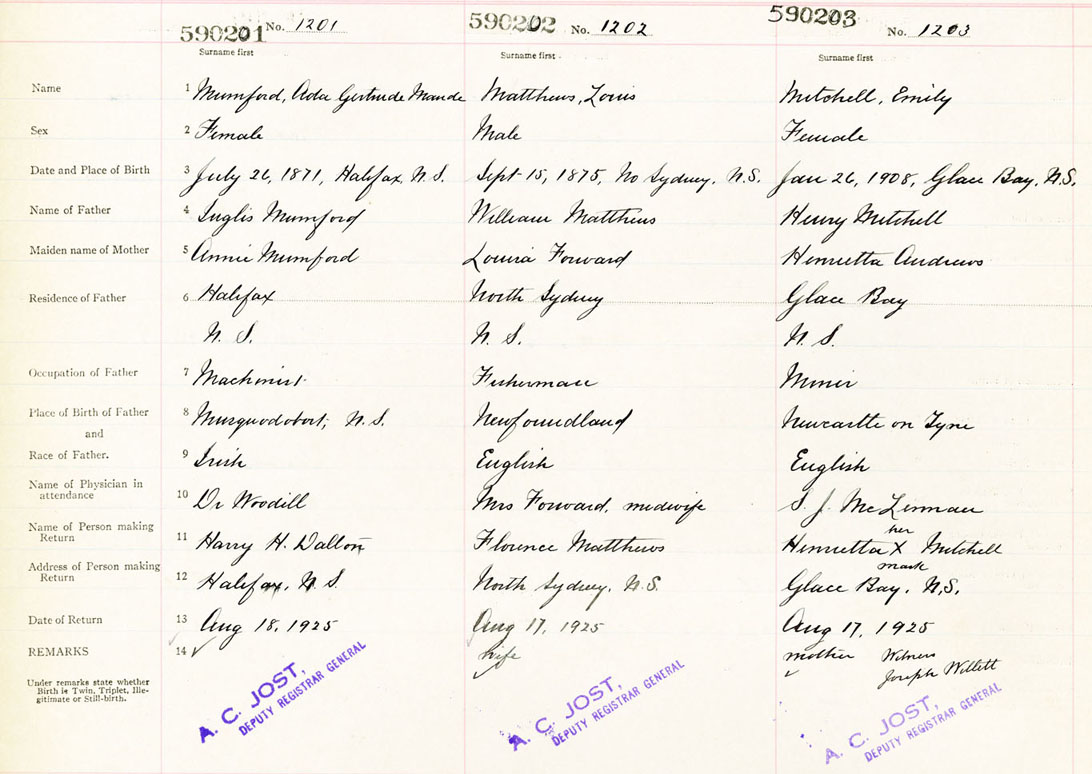 590201 No. 1201
590202 No. 1202
590203 No. 1203
Surname first
Surname first
Surname first
Name 1 Mumford, Ada Gertrude Maude Matthews, Louis Mitchell, Emily
Sex 2 Female Male Female
Date and Place of Birth 3 July 26, 1871, Halifax, N.S. Sept 15, 1875, No Sydney, N.S. Jan 26, 1908, Glace Bay, N.S.
Name of Father 4 Inglis Mumford William Matthews Henry Mitchell
Maiden name of Mother 5 Annie Mumford Louisa Forward Henrietta Andrews
Residence of Father 6 Halifax North Sydney Glace Bay
N. S. N. S. N. S.
Occupation of Father 7 Machinist Fisherman Miner
Place of Birth of Father 8 Musquodobort, N.S. Newfoundland Newcastle on Tyne
and
Race of Father. 9 Irish English English
Name of Physician in
attendance 10 Dr Woodill Mrs Forward, midwife S. J. McLennan
Name of Person making
Return 11 Harry H. Dalton Florence Matthews Henrietta her X mark Mitchell
Address of Person making
Return 12 Halifax, N.S. North Sydney, N.S. Glace Bay, N.S.
Date of Return 13 Aug 18, 1925 Aug 17, 1925 Aug 17, 1925
REMARKS 14 ✓ wife mother Witness
Joseph Willett
Under remarks state whether
Birth is Twin, Triplet, Ille-
gitimate or Still-birth.
A. C. JOST,
DEPUTY REGISTRAR GENERAL
A. C. JOST,
DEPUTY REGISTRAR GENERAL
A. C. JOST,
DEPUTY REGISTRAR GENERAL